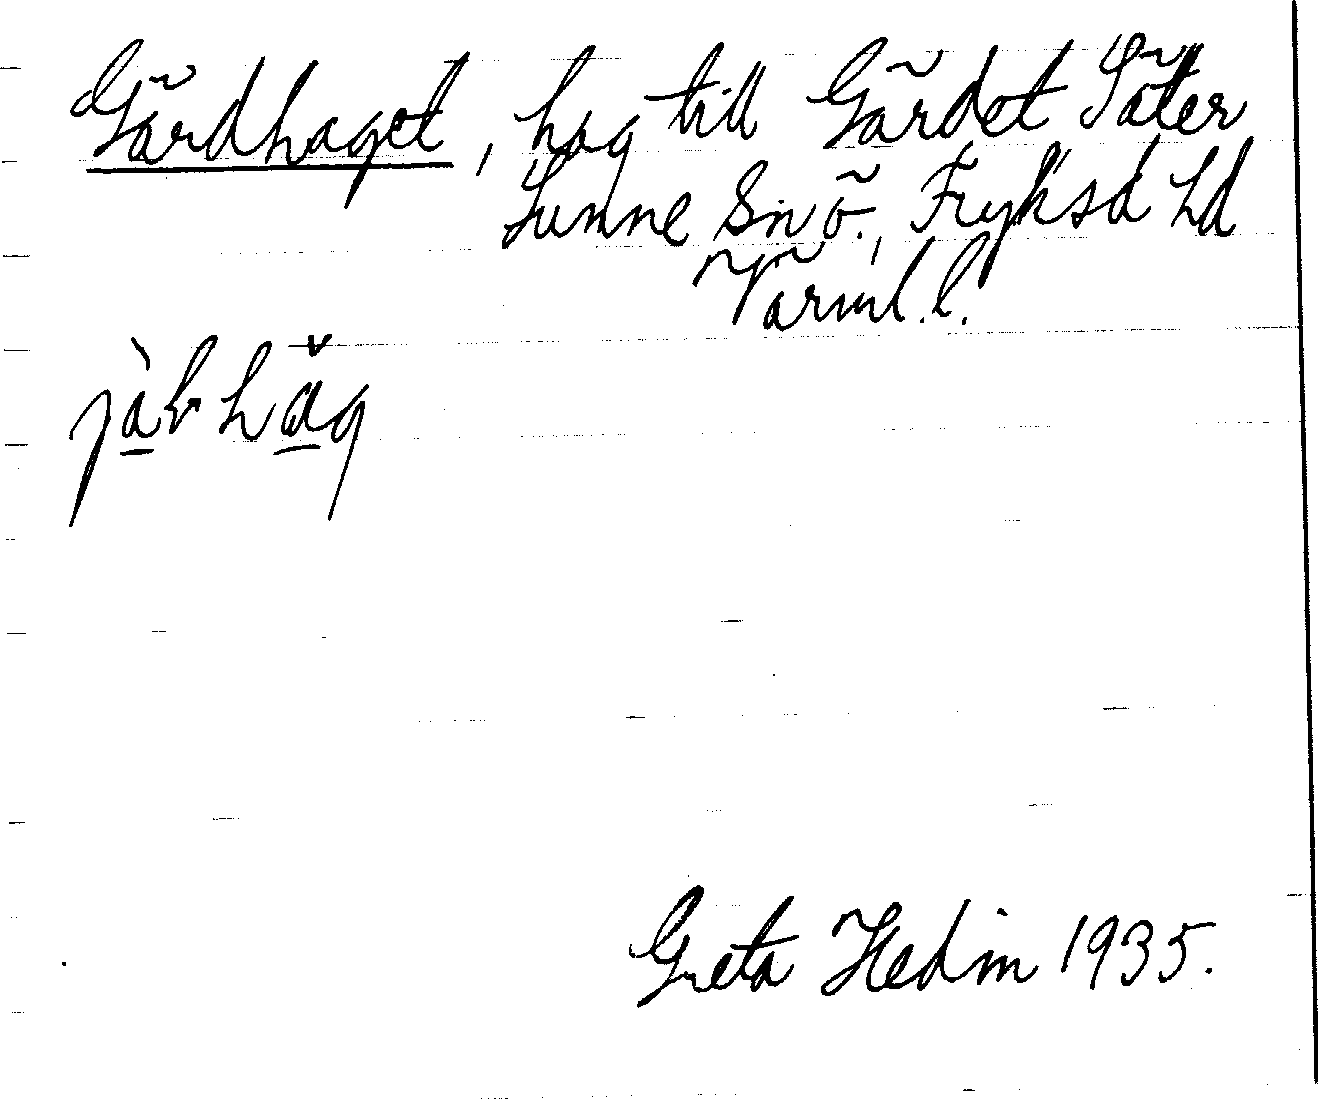 Gärdhaget, hag till Gärdet Säter
Sunne Snö., Fryksd hd
Värml. l.
Greta Hedin 1935.